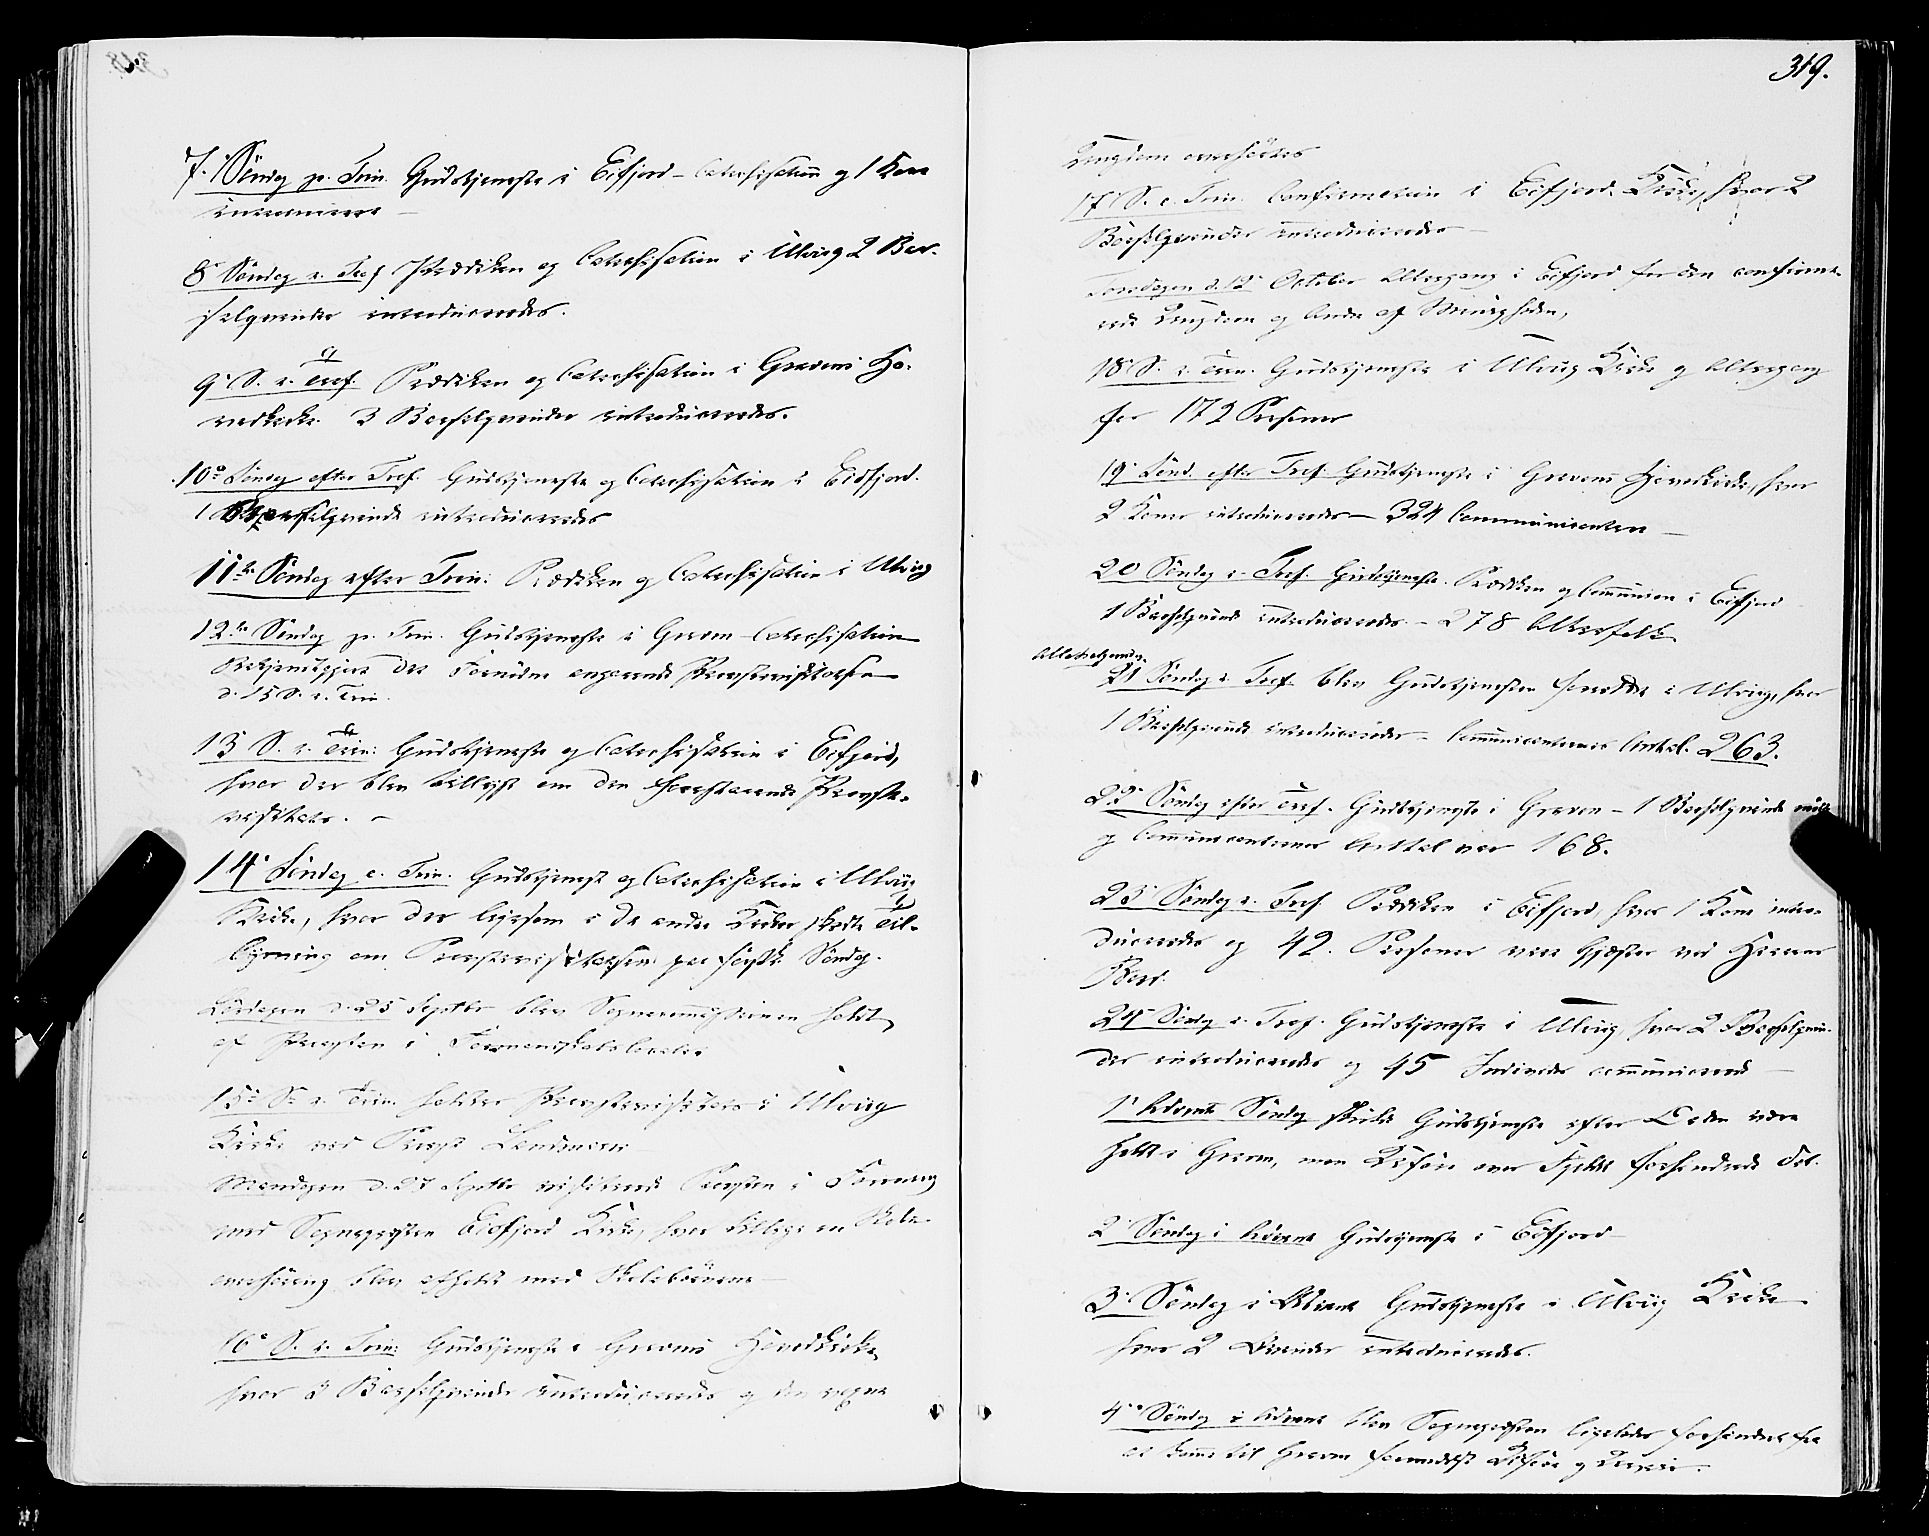 7. Söndag p. Trin. Gudstjeneste i Eifjord - Catechisation og 1 Kone
introduceret -
8 Söndag e. Tref Prædiken og Catechisation i Ulvig 2 Bar-
selqvinder introduceredes.
9 S. e. Tref. Prædiken og Catechisation i Gravens Ho-
vedkirke. 3 Barselqvinder introduceredes.
10 Söndag efter Tref. Gudstjeneste og Catechisation i Eidfjord.
1 Barselqvinde introduceredes
11te Söndag efter Trin: Prædiken og Catechisation i Ulvig
12te Söndag p. Trin. Gudstjeneste i Graven - Catechisation
Bekjendtgjort der Fornödne angaaende Provstevisitatsen
d. 15 S. e. Trin.
13 S. e. Trin: Gudstjeneste og Catechisation i Eifjord,
hvor der blev tillyst om den forestaaende Provste-
visitats. -
14 Söndag e. Trin. Gudstjeneste og Catechisation i Ulvig
Kirke, hvor der ligesom i de andre Kirker skedte Til-
lysning om Provstevisitatsen paa förstk. Söndag.
Löverdagen d. 25 Septbr blev holdt
af Provsten i
15 S. e. Trin. holdtes Provstevisitats i Ulvig
Kirke ved Provst
Mandagen d. 27 Septbr visiterede Provsten i Forening
med Sognepræsten Eidfjord Kirke, hvor tillige en Skole-
overhöring blev afholdt med Skolebörnene -
16 S. e. Trin: Gudstjeneste i Gravens Hovedkirke,
hvor 3 Barselqvinder introduceredes og den vegne
319.
Ungdom overhörtes
17 S. e. Trin. Confirmation i Eifjord Kirke, hvor 2
Barselqvinder introduceredes -
Torsdagen d. 12 October Altergang i Eifjord for den confirme-
rede Ungdom og Andre af Menigheden,
18 S. e. Trin. Gudstjeneste i Ulvig Kirke og Altergang
for 172 Personer
19 Sönd. efter Tref. Gudstjeneste i Gravens Hovedkirke, hvor
2 Koner introduceredes - 324 Communicantere -
20 Söndag e. Tref. Gudstjeneste. Prædiken og Communion i Eifjord
1 Barselqvinde introduceredes - 278 Alterfolk
Allehelgensd.
21 Söndag e. Tref. blev Gudstjenesten forrettet i Ulvig, hvor
1 Barselqvinde introduceredes - Communicanternes Antal 263.
22 Söndag efter Tref. Gudstjeneste i Graven - 1 Barselqvinde
og Communicanternes Antal var 168.
23 Söndag e. Tref Prædiken i Eifjord, hvor 1 Kone intro-
duceredes og 42. Personer vare Gjæster ved Herrens
Bord.
24 Söndag e. Tref. Gudstjeneste i Ulvig, hvor 2 Barselqvin-
der introduceredes og 45 Individer communicerede -
1 Advents Söndag skulde Gudstjeneste efter Orden være
holdt i Graven, men Uföre over Fjeldet forhindrede det.
2 Söndag i Advent Gudstjeneste i Eifjord -
3 Söndag i Advent Gudstjeneste i Ulvig Kirke
hvor 2 Qvinder introduceredes.
4 Söndag i Advent blev Sognepræsten ligeledes forhindret fra
at komme til Graven formedelst Uföre og Uveir.